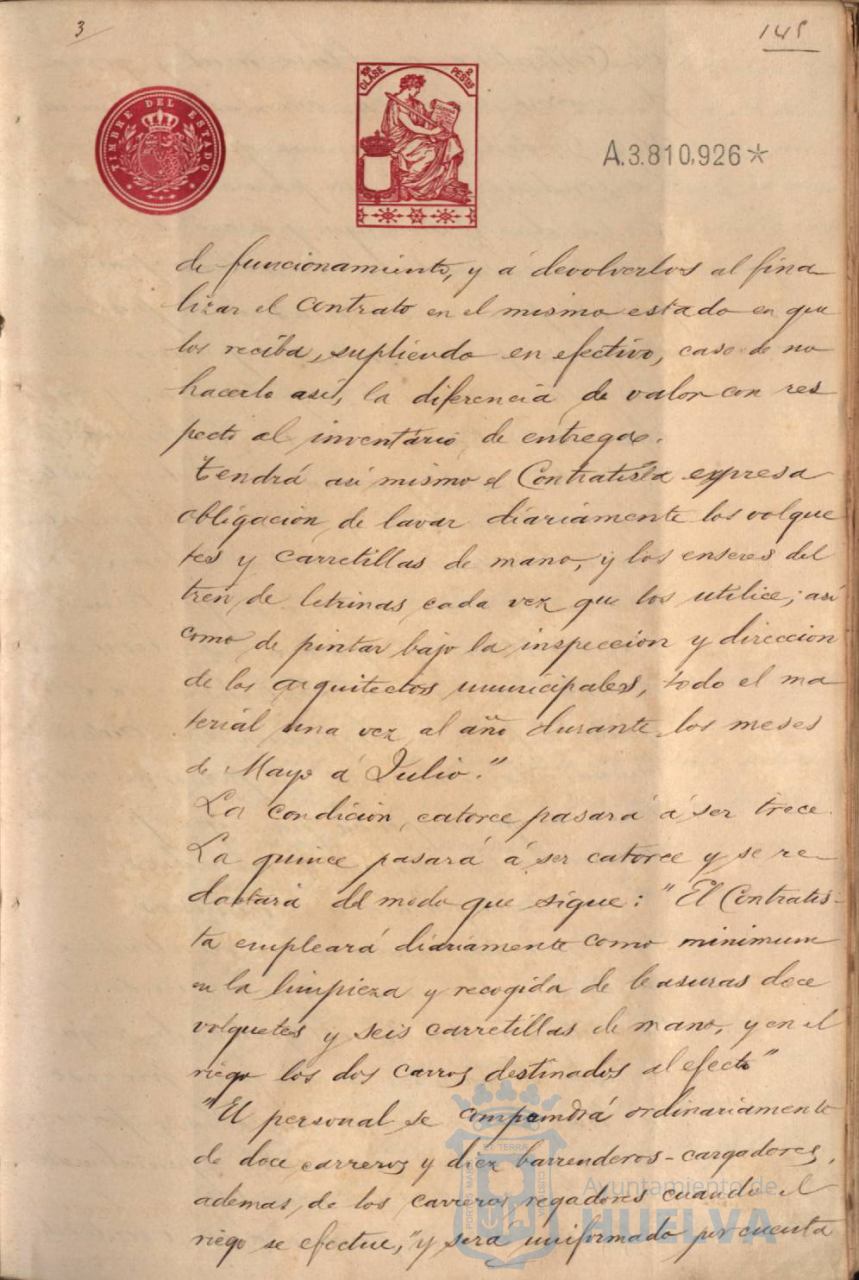 3
145
TIMBRE DEL ESTADO
10ª CLASE
2 PESTAS
A.3.810,926*
de funcionamiento, y á devolverlos al fina-
lizar el contrato en el mismo estado en que
los reciba, supliendo en efectivo, caso de no
hacerlo así, la diferencia de valor con res
pecto al inventario de entrega.
Tendrá así mismo el Contratista expresa
obligación de lavar diariamente los volque
tes y carretillas de mano, y los enseres del
tren de letrinas cada vez que los utilice; así
como de pintar bajo la inspeccion y direccion
de los arquitectos municipales, todo el ma
terial una vez al año durante los meses
de Mayo á Julio."
La condición catorce pasará á ser trece.
La quince pasará á ser catorce y se re-
dactará del modo que sigue: "El Contratis-
ta empleará diariamente como minimum
en la limpieza y recogida de basuras doce
volquetes y seis carretillas de mano, y en el
riego los dos carros destinados al efecto"
"El personal se compondrá ordinariamente
de doce carreros y diez barrenderos-cargadores,
ademas de los carreros regadores cuando el
riego se efectue, "y será uniformado por cuenta
Ayuntamiento de
HUELVA